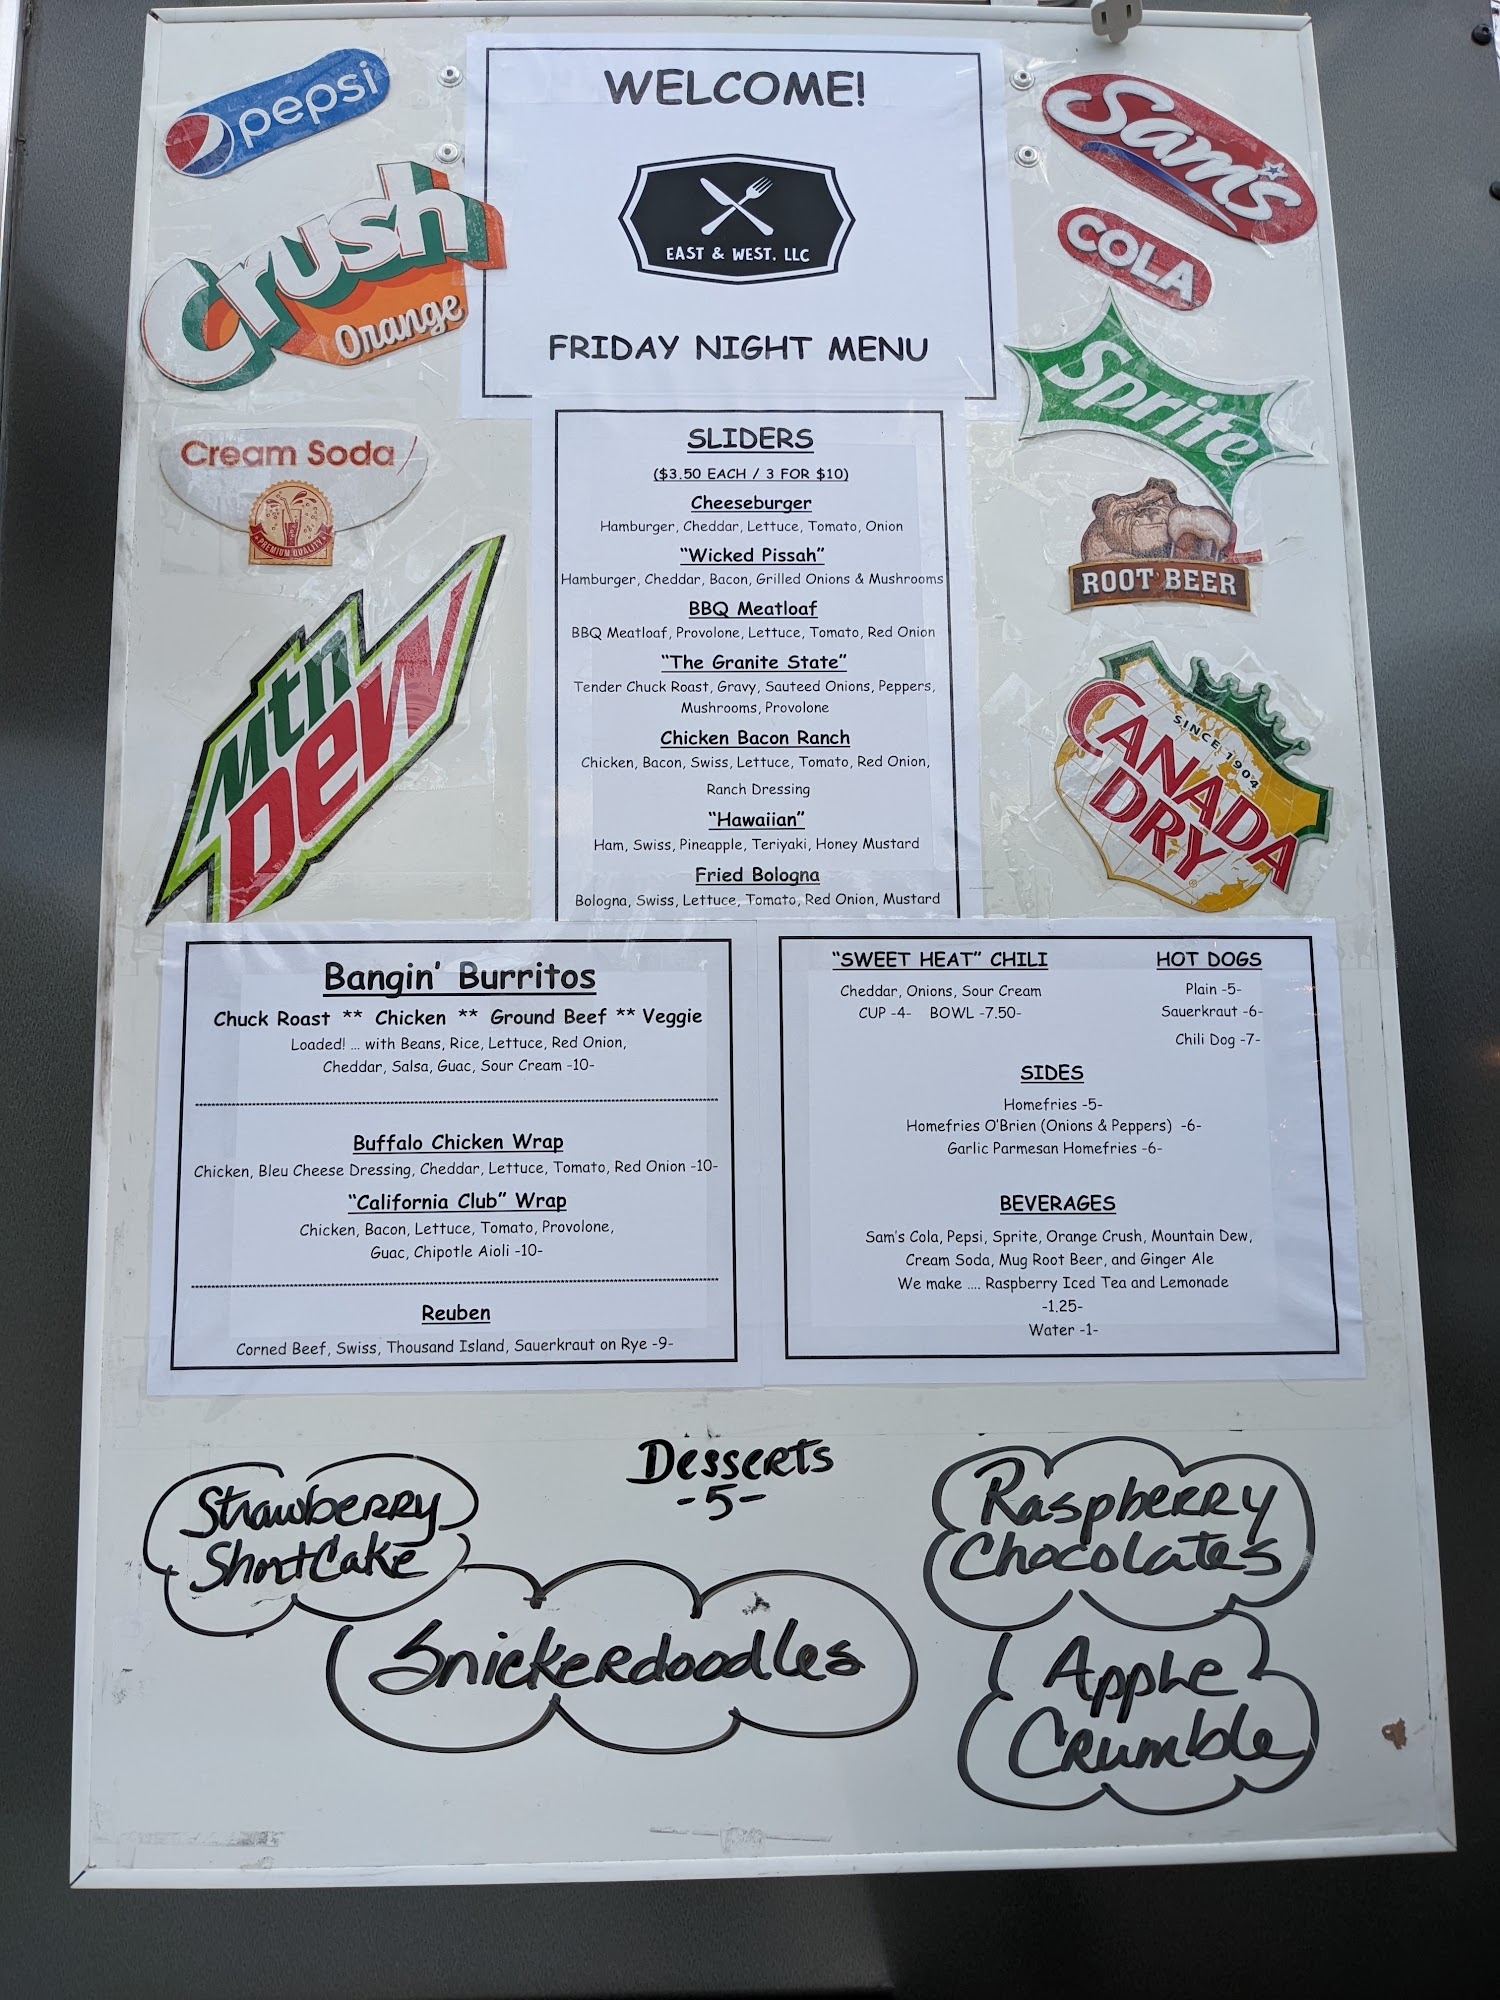 WELCOME!
EAST & WEST. LLC
FRIDAY NIGHT MENU
pepsi
Crush
Orange
Cream Soda
PREMIUM QUALITY
Mtn
Dew
Sam's
COLA
Sprite
ROOT BEER
SINCE 1904
CANADA
DRY
SLIDERS
($3.50 EACH / 3 FOR $10)
Cheeseburger
Hamburger, Cheddar, Lettuce, Tomato, Onion
“Wicked Pissah”
Hamburger, Cheddar, Bacon, Grilled Onions & Mushrooms
BBQ Meatloaf
BBQ Meatloaf, Provolone, Lettuce, Tomato, Red Onion
“The Granite State”
Tender Chuck Roast, Gravy, Sauteed Onions, Peppers,
Mushrooms, Provolone
Chicken Bacon Ranch
Chicken, Bacon, Swiss, Lettuce, Tomato, Red Onion,
Ranch Dressing
“Hawaiian”
Ham, Swiss, Pineapple, Teriyaki, Honey Mustard
Fried Bologna
Bologna, Swiss, Lettuce, Tomato, Red Onion, Mustard
Bangin’ Burritos
Chuck Roast ** Chicken ** Ground Beef ** Veggie
Loaded! ... with Beans, Rice, Lettuce, Red Onion,
Cheddar, Salsa, Guac, Sour Cream -10-
Buffalo Chicken Wrap
Chicken, Bleu Cheese Dressing, Cheddar, Lettuce, Tomato, Red Onion -10-
“California Club” Wrap
Chicken, Bacon, Lettuce, Tomato, Provolone,
Guac, Chipotle Aioli -10-
Reuben
Corned Beef, Swiss, Thousand Island, Sauerkraut on Rye -9-
“SWEET HEAT” CHILI
Cheddar, Onions, Sour Cream
CUP -4- BOWL -7.50-
HOT DOGS
Plain -5-
Sauerkraut -6-
Chili Dog -7-
SIDES
Homefries -5-
Homefries O’Brien (Onions & Peppers) -6-
Garlic Parmesan Homefries -6-
BEVERAGES
Sam’s Cola, Pepsi, Sprite, Orange Crush, Mountain Dew,
Cream Soda, Mug Root Beer, and Ginger Ale
We make .... Raspberry Iced Tea and Lemonade
-1.25-
Water -1-
Desserts
-5-
Strawberry
ShortCake
Snickerdoodles
Raspberry
Chocolates
Apple
Crumble